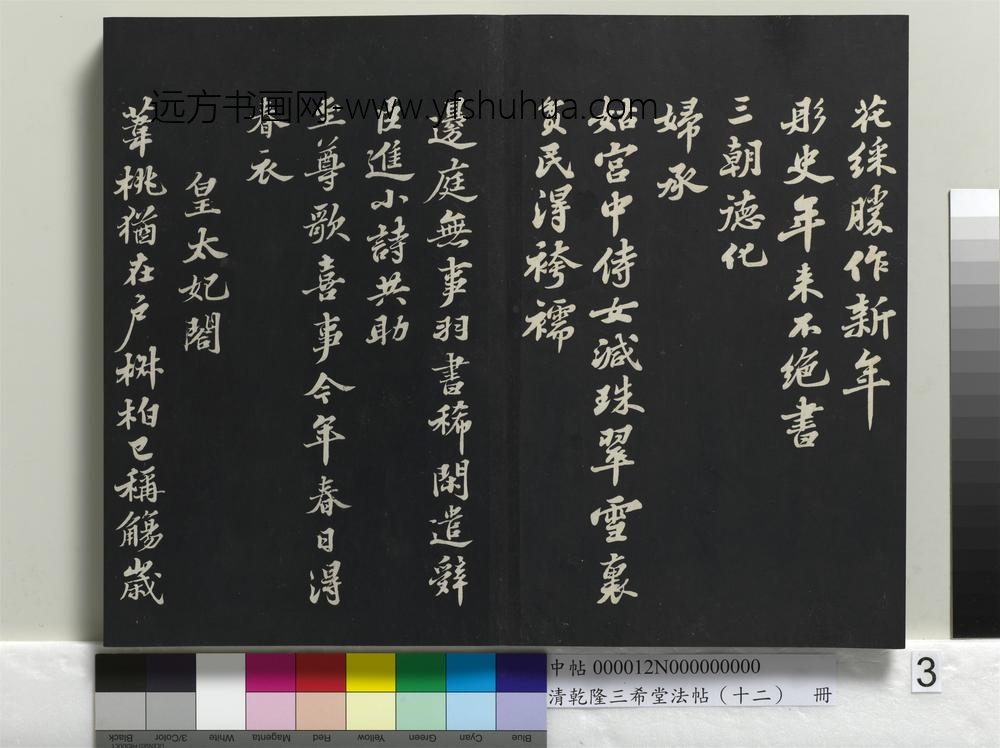 花綵勝作新年
彤史年来不絶書
三朝德化
婦承
姑宮中侍女減珠翠雪裏
貧民得袴襦
邊庭無事羽書稀閑遣辭
臣進小詩共助
至尊歌喜事今年春日得
春衣
皇太妃閤
葦桃猶在户椒柏已稱觴歲
远方书画网-www.yfshuhua.com
中帖 000012N000000000
清乾隆三希堂法帖（十二） 冊
3
Black 3/Color White Magenta Red Yellow Green Cyan Blue